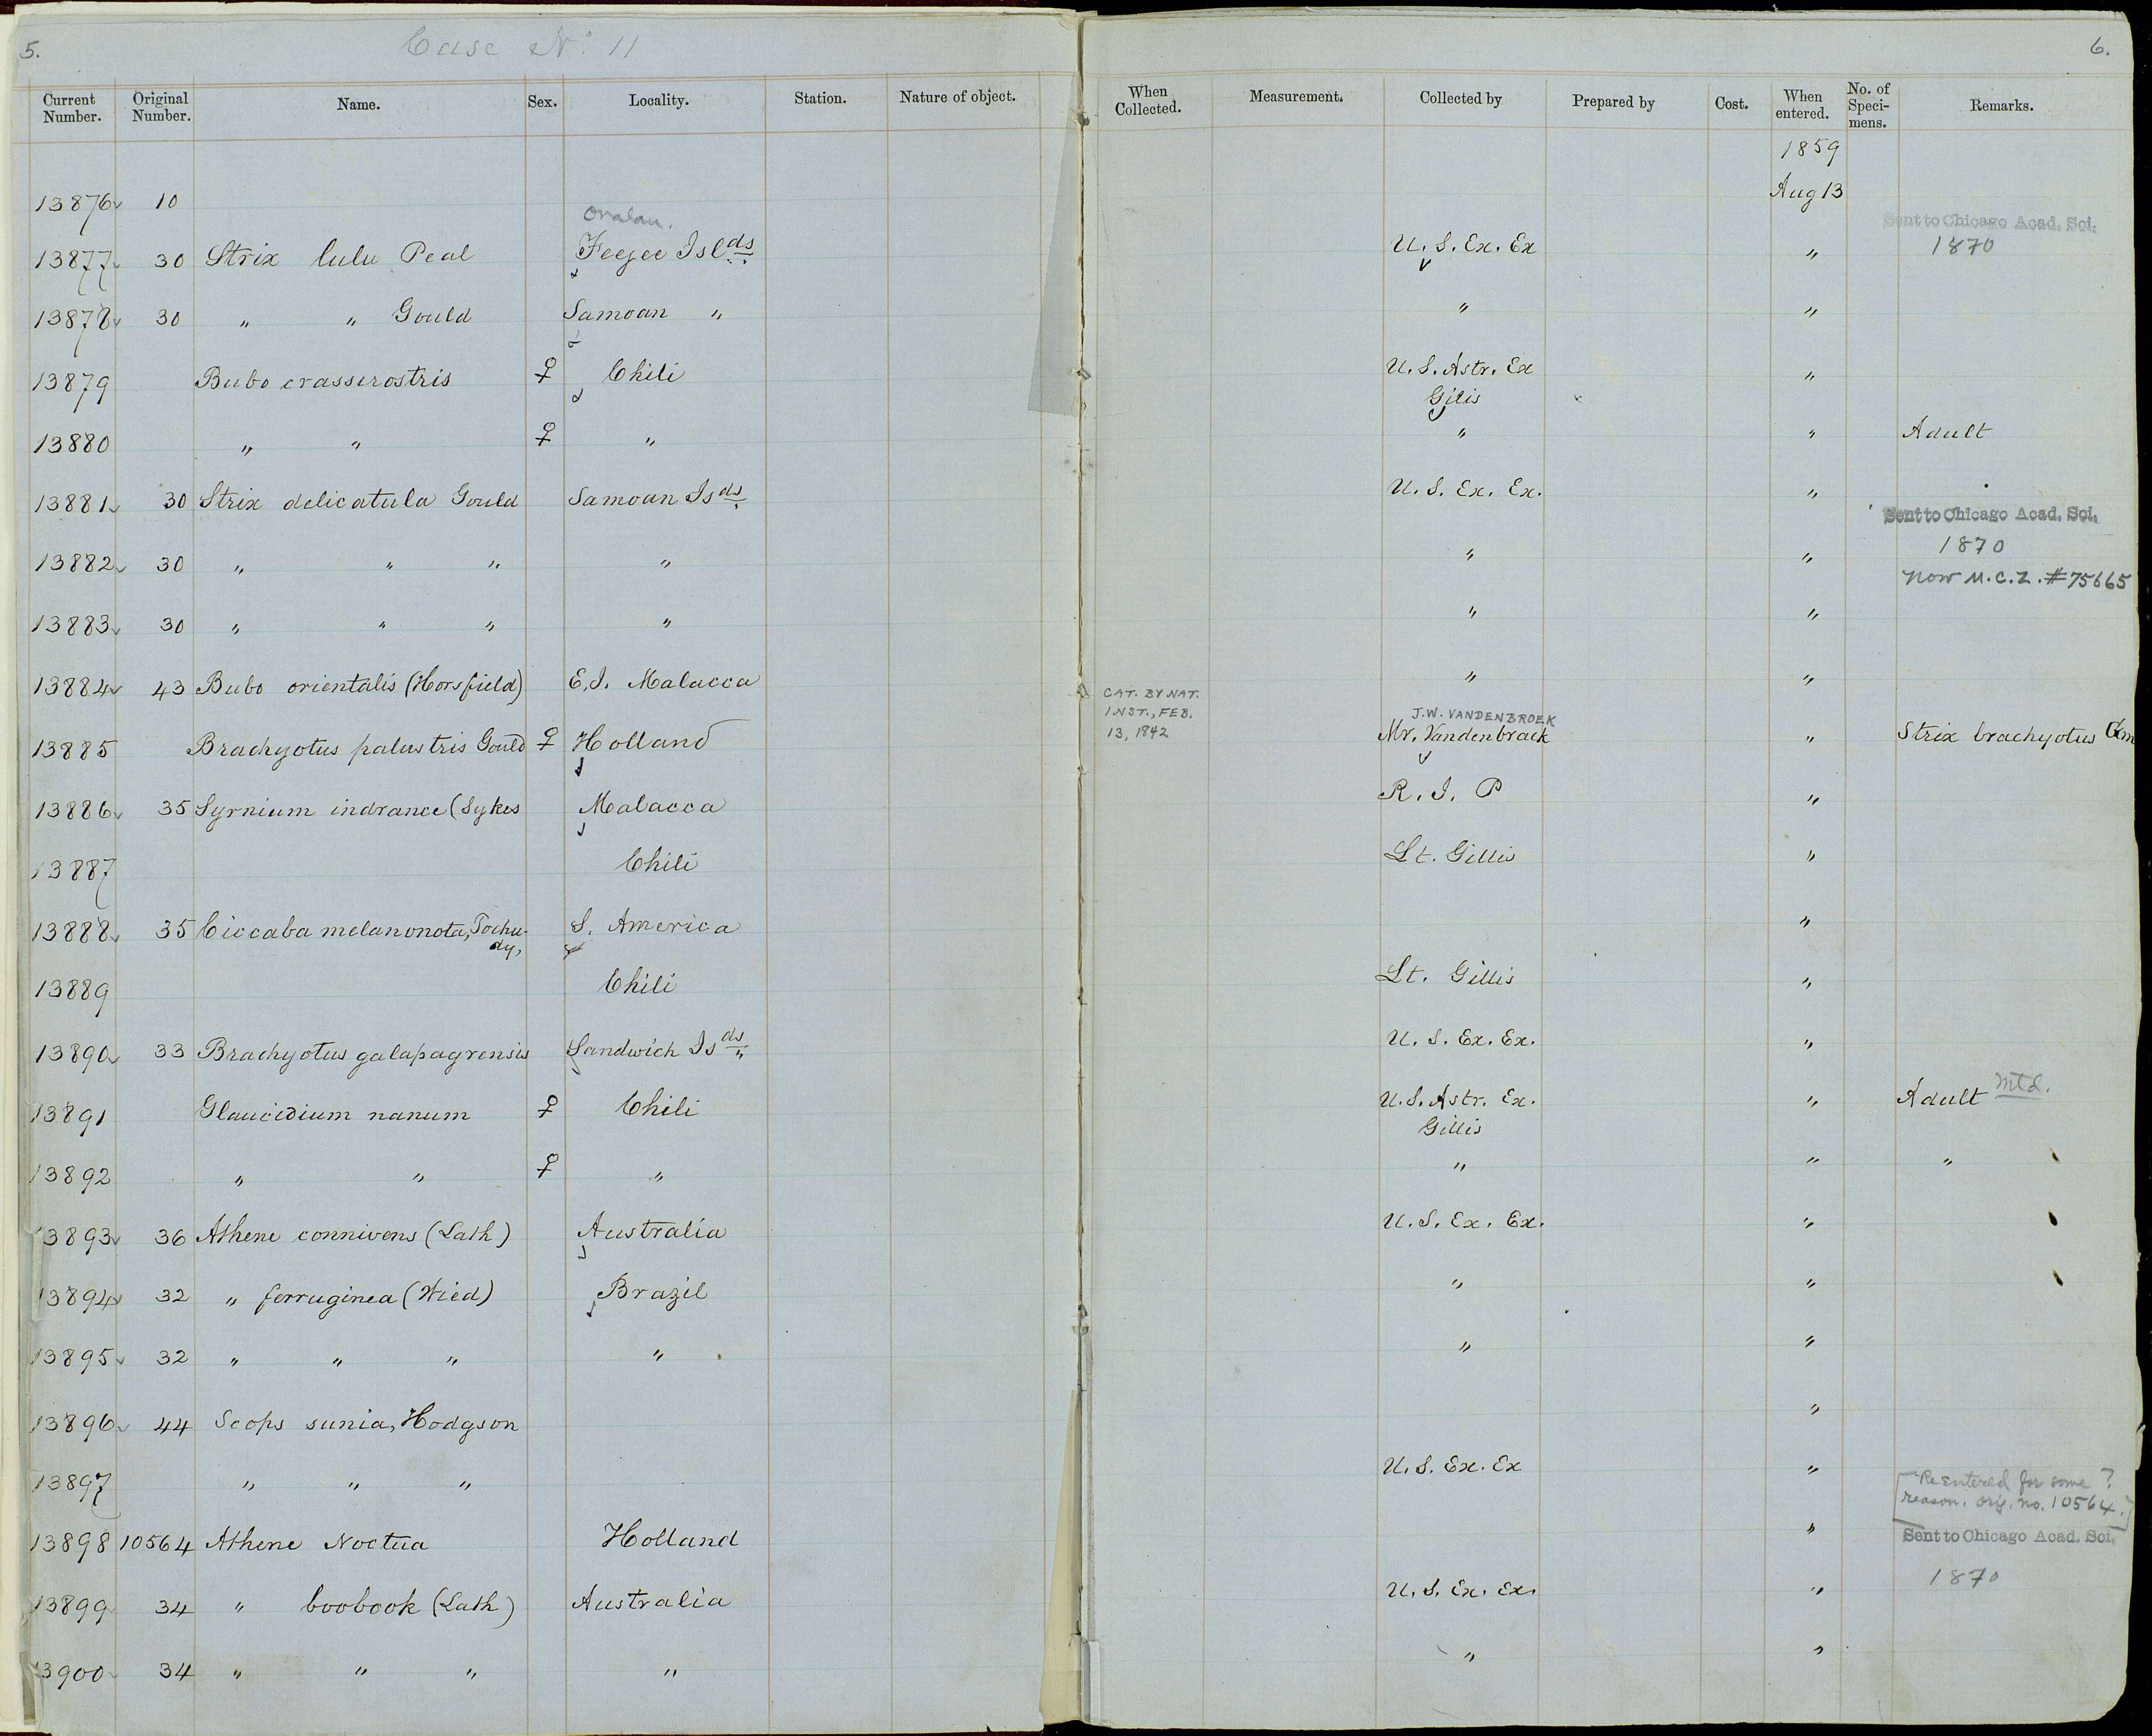 5.
Case No. 11
6.
Current Number. Original Number. Name. Sex. Locality. Station. Nature of object. When Collected. Measurement. Collected by Prepared by Cost. When entered. No. of Specimens. Remarks.
1859
13876 10 Aug 13
Ovalau. Sent to Chicago Acad. Sci.
13877 30 Strix lulu Peal Feejee Islds U. S. Ex. Ex " 1870
13878 30 " " Gould Samoan " " "
13879 Bubo crassirostris ♀ Chili U. S. Astr. Ex "
Gilis
13880 " " ♀ " " " Adult
13881 30 Strix delicatula Gould Samoan Isds U. S. Ex. Ex. "
Sent to Chicago Acad. Sci.
13882 30 " " " " " " 1870
Now M.C.Z. #75665
13883 30 " " " " " "
13884 43 Bubo orientalis (Horsfield) E. I. Malacca " "
CAT. BY NAT. INST., FEB. 13, 1842
J.W. VANDENBROEK
13885 Brachyotus palustris Gould ♀ Holland Mr. Vandenbrack " Strix brachyotus
13886 35 Syrnium indranee (Sykes Malacca R. I. P "
13887 Chili Lt. Gillis "
13888 35 Ciccaba melanonota, Tschudy, S. America "
13889 Chili Lt. Gillis "
13890 33 Brachyotus galapagrensis Sandwich Isds U. S. Ex. Ex. "
13891 Glaucidium nanum ♀ Chili U. S. Astr. Ex. " Adult Mtd.
Gillis
13892 " " ♀ " " " "
13893 36 Athene connivens (Lath) Australia U. S. Ex. Ex. "
13894 32 " ferruginea (Wied) Brazil " "
13895 32 " " " " " "
13896 44 Scops sunia, Hodgson "
13897 " " " U. S. Ex. Ex "
[Re entered for some reason. orig. no. 10564.?]
13898 10564 Athene Noctua Holland " Sent to Chicago Acad. Sci.
1870
13899 34 " boobook (Lath) Australia U. S. Ex. Ex. "
13900 34 " " " " " "